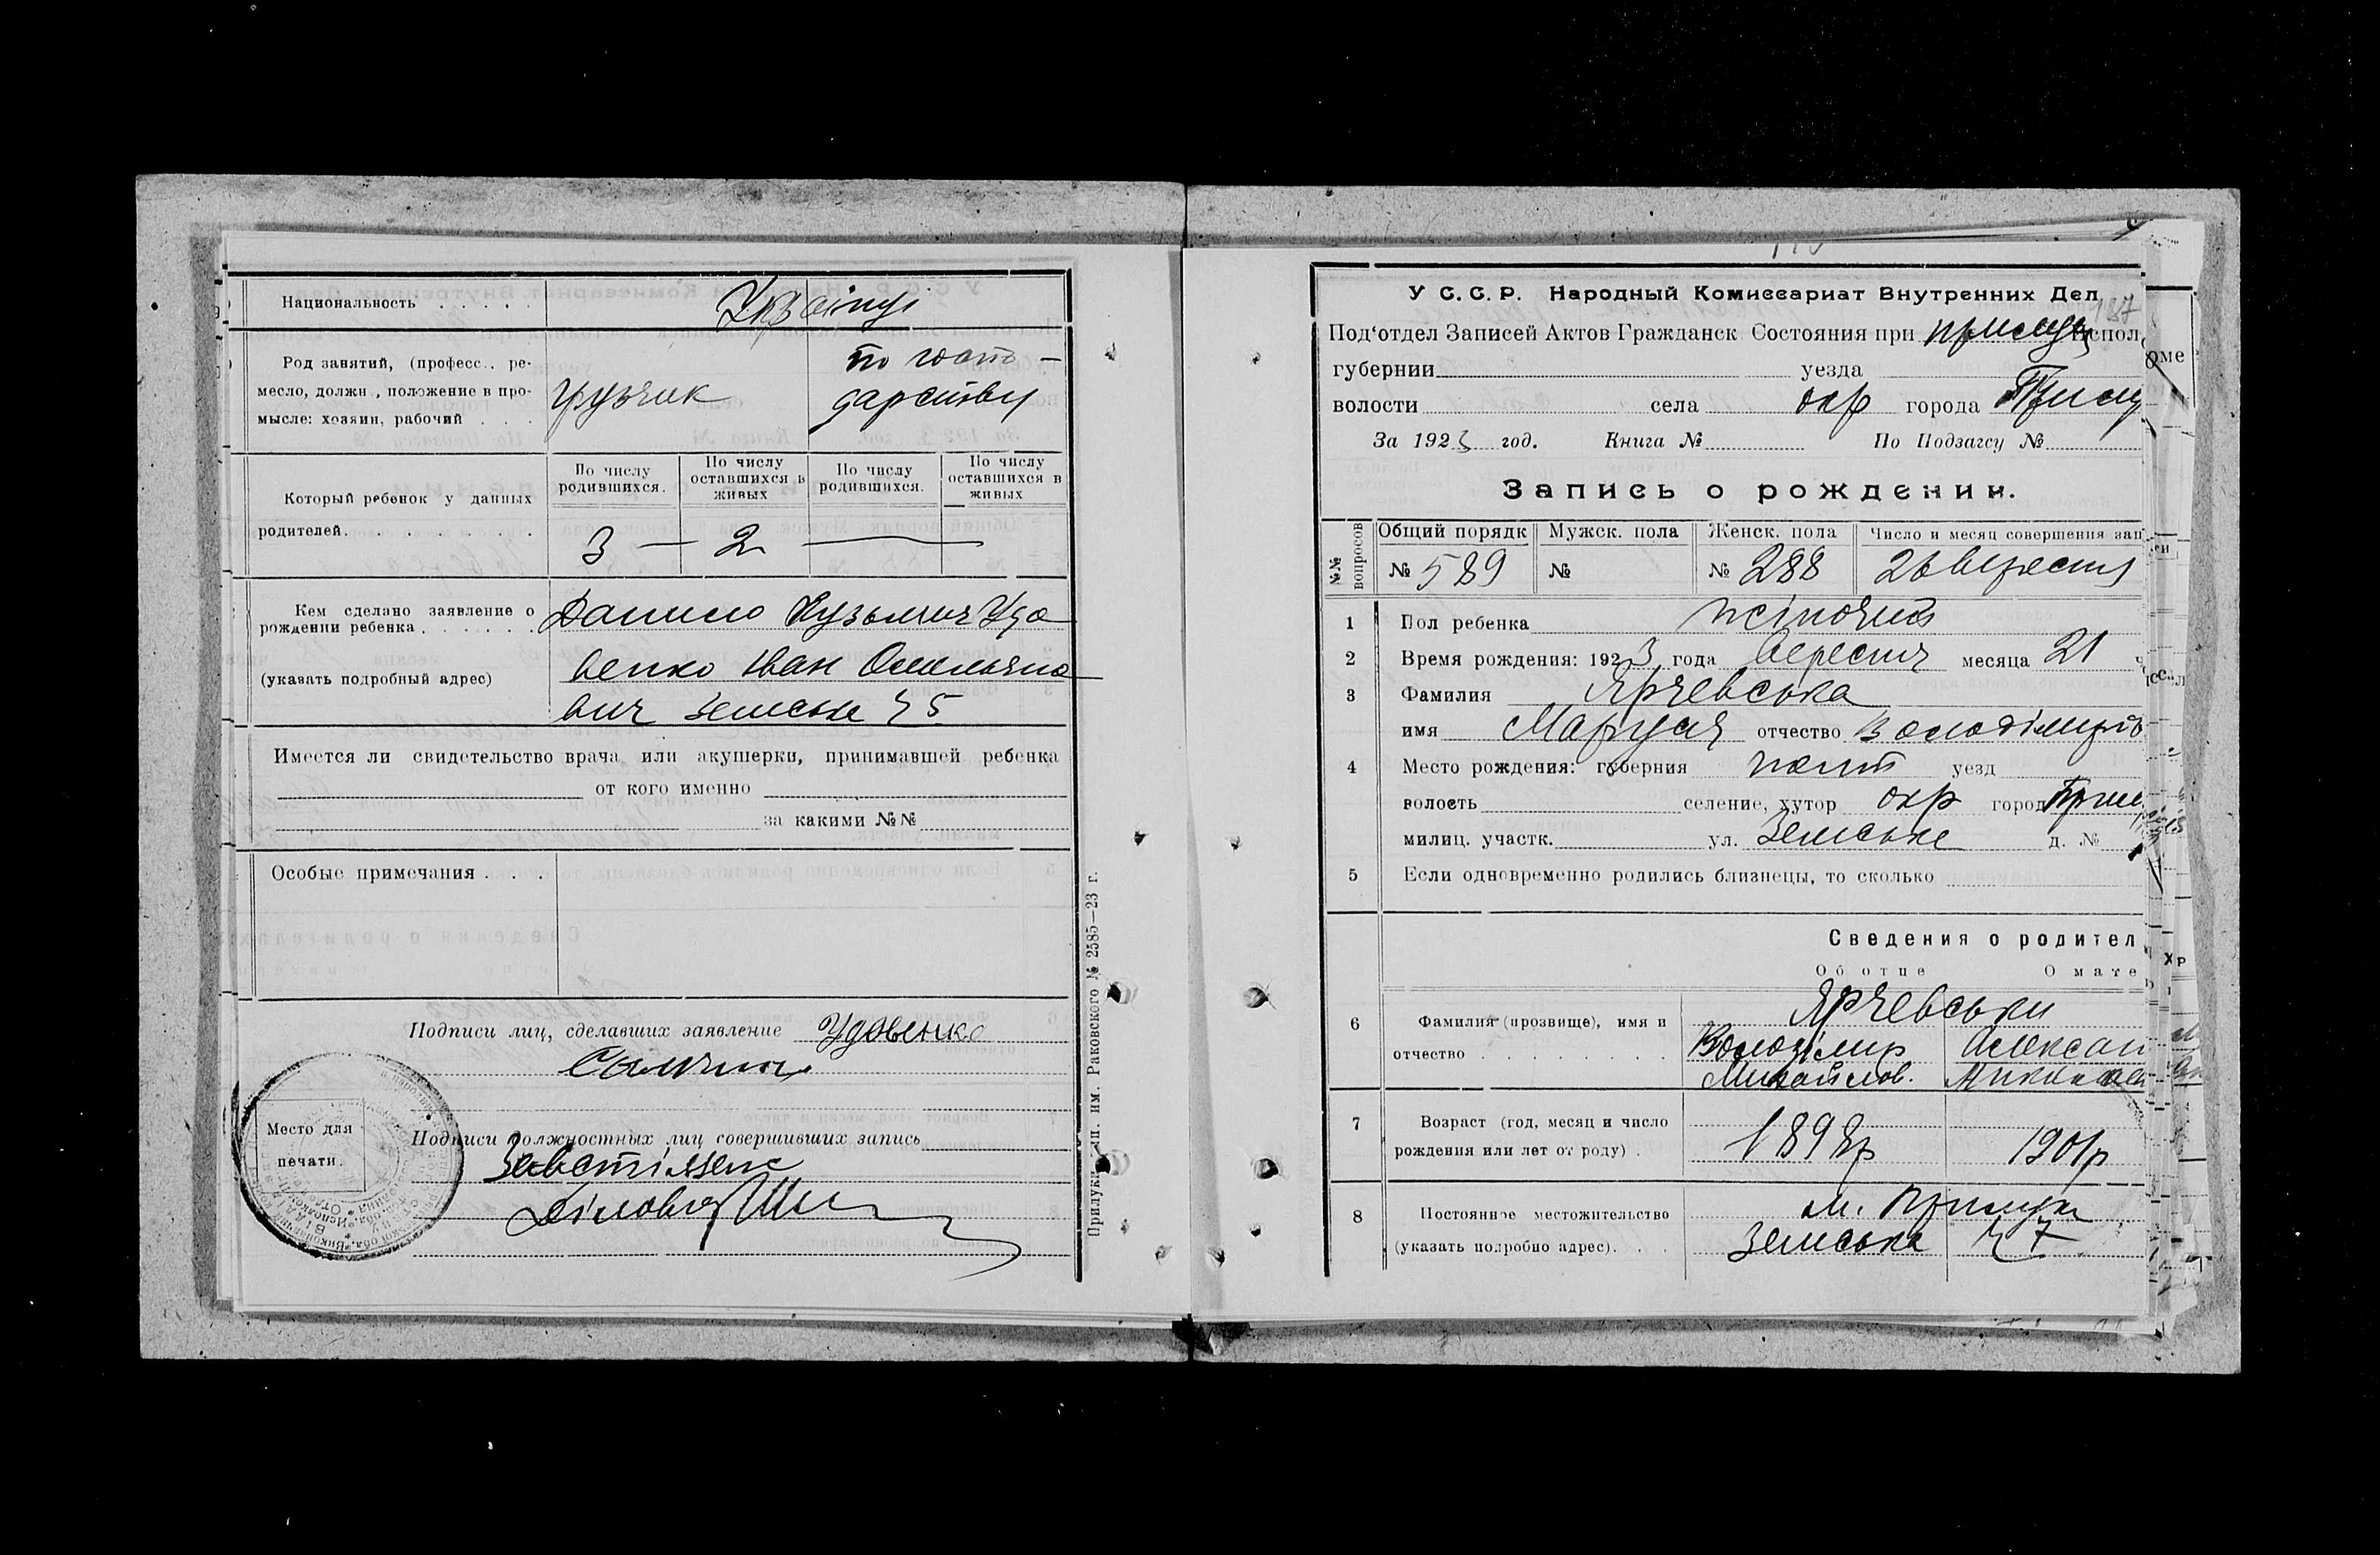 Национальность
Українці
Род занятий, (професс., ре-
месло, должн., положение в про-
мысле: хозяин, рабочий
грузчик
по госпо-
дарству
Который ребенок у данных
родителей.
По числу родившихся.
По числу оставшихся в живых
По числу родившихся.
По числу оставшихся в живых
3 — 2 —
Кем сделано заявление о
рождении ребенка
(указать подробный адрес)
Данило Кузьмич Удо
венко Іван Омельяно
вич Земська 45
Имеется ли свидетельство врача или акушерки, принимавшей ребенка
от кого именно
за какими №№
Особые примечания . . .
Подписи лиц, сделавших заявление Удовенко
Место для
печати.
Подписи должностных лиц совершивших запись
Діловод
Прилуки, тип. им. Раковского № 2585—23 г.
187
У С. С. Р. Народный Комиссариат Внутренних Дел
Под'отдел Записей Актов Гражданск Состояния при Прилуц Испол
губернии уезда
волости села окр города Прилу
За 1923 год. Книга № По Подзагсу №
Запись о рождении.
№№ вопросов
Общий порядк Мужск. пола Женск. пола Число и месяц совершения зап
№ 589 № № 288 26 вересня
1 Пол ребенка жіночий
2 Время рождения: 1923 года вересня месяца 21
3 Фамилия Ярчевська
имя Маруся отчество Володімиров
4 Место рождения: губерния полт уезд
волость селение, хутор окр город Прил
милиц. участк. ул. Земська д. №
5 Если одновременно родились близнецы, то сколько
Сведения о родител
Об отце О мате
6 Фамилия (прозвище), имя и
отчество
Ярчевськи
Володімир Олексан
Михайлов. Микола
7 Возраст (год, месяц и число
рождения или лет от роду) .
1898р 1901р
8 Постоянное местожительство
(указать подробно адрес).
м. Прилуки
Земська 47